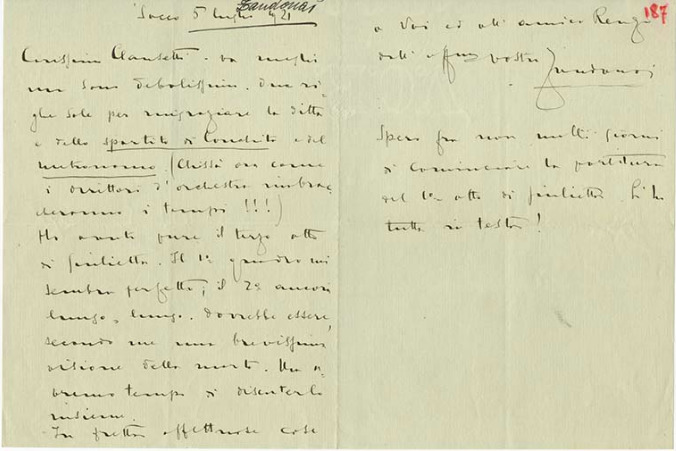 Zandonai
Sacco 5 luglio 921
187
Carissimo Clausetti - va meglio
ma sono debolissimo. Due ri-
ghe sole per ringraziare la ditta
e dello spartito di Conchita e del
metronomo. (Chissà ora come
i direttori d'orchestra
i tempi !!!)
Ho avuto pure il terzo atto
di Giulietta. Il 1º quadro mi
sembra perfetto; il 2º ancora
lungo, lungo. Dovrebbe essere,
secondo me una brevissima
visione della morte. Ma a-
vremo tempo di discuterlo
insieme.
In fretta affettuose cose
a Voi ed all'amico Renzo
dall'aff.mo vostro Zandonai
Spero fra non molti giorni
di cominciare la partitura
del 1º atto di Giulietta. L'ho
tutta in testa!